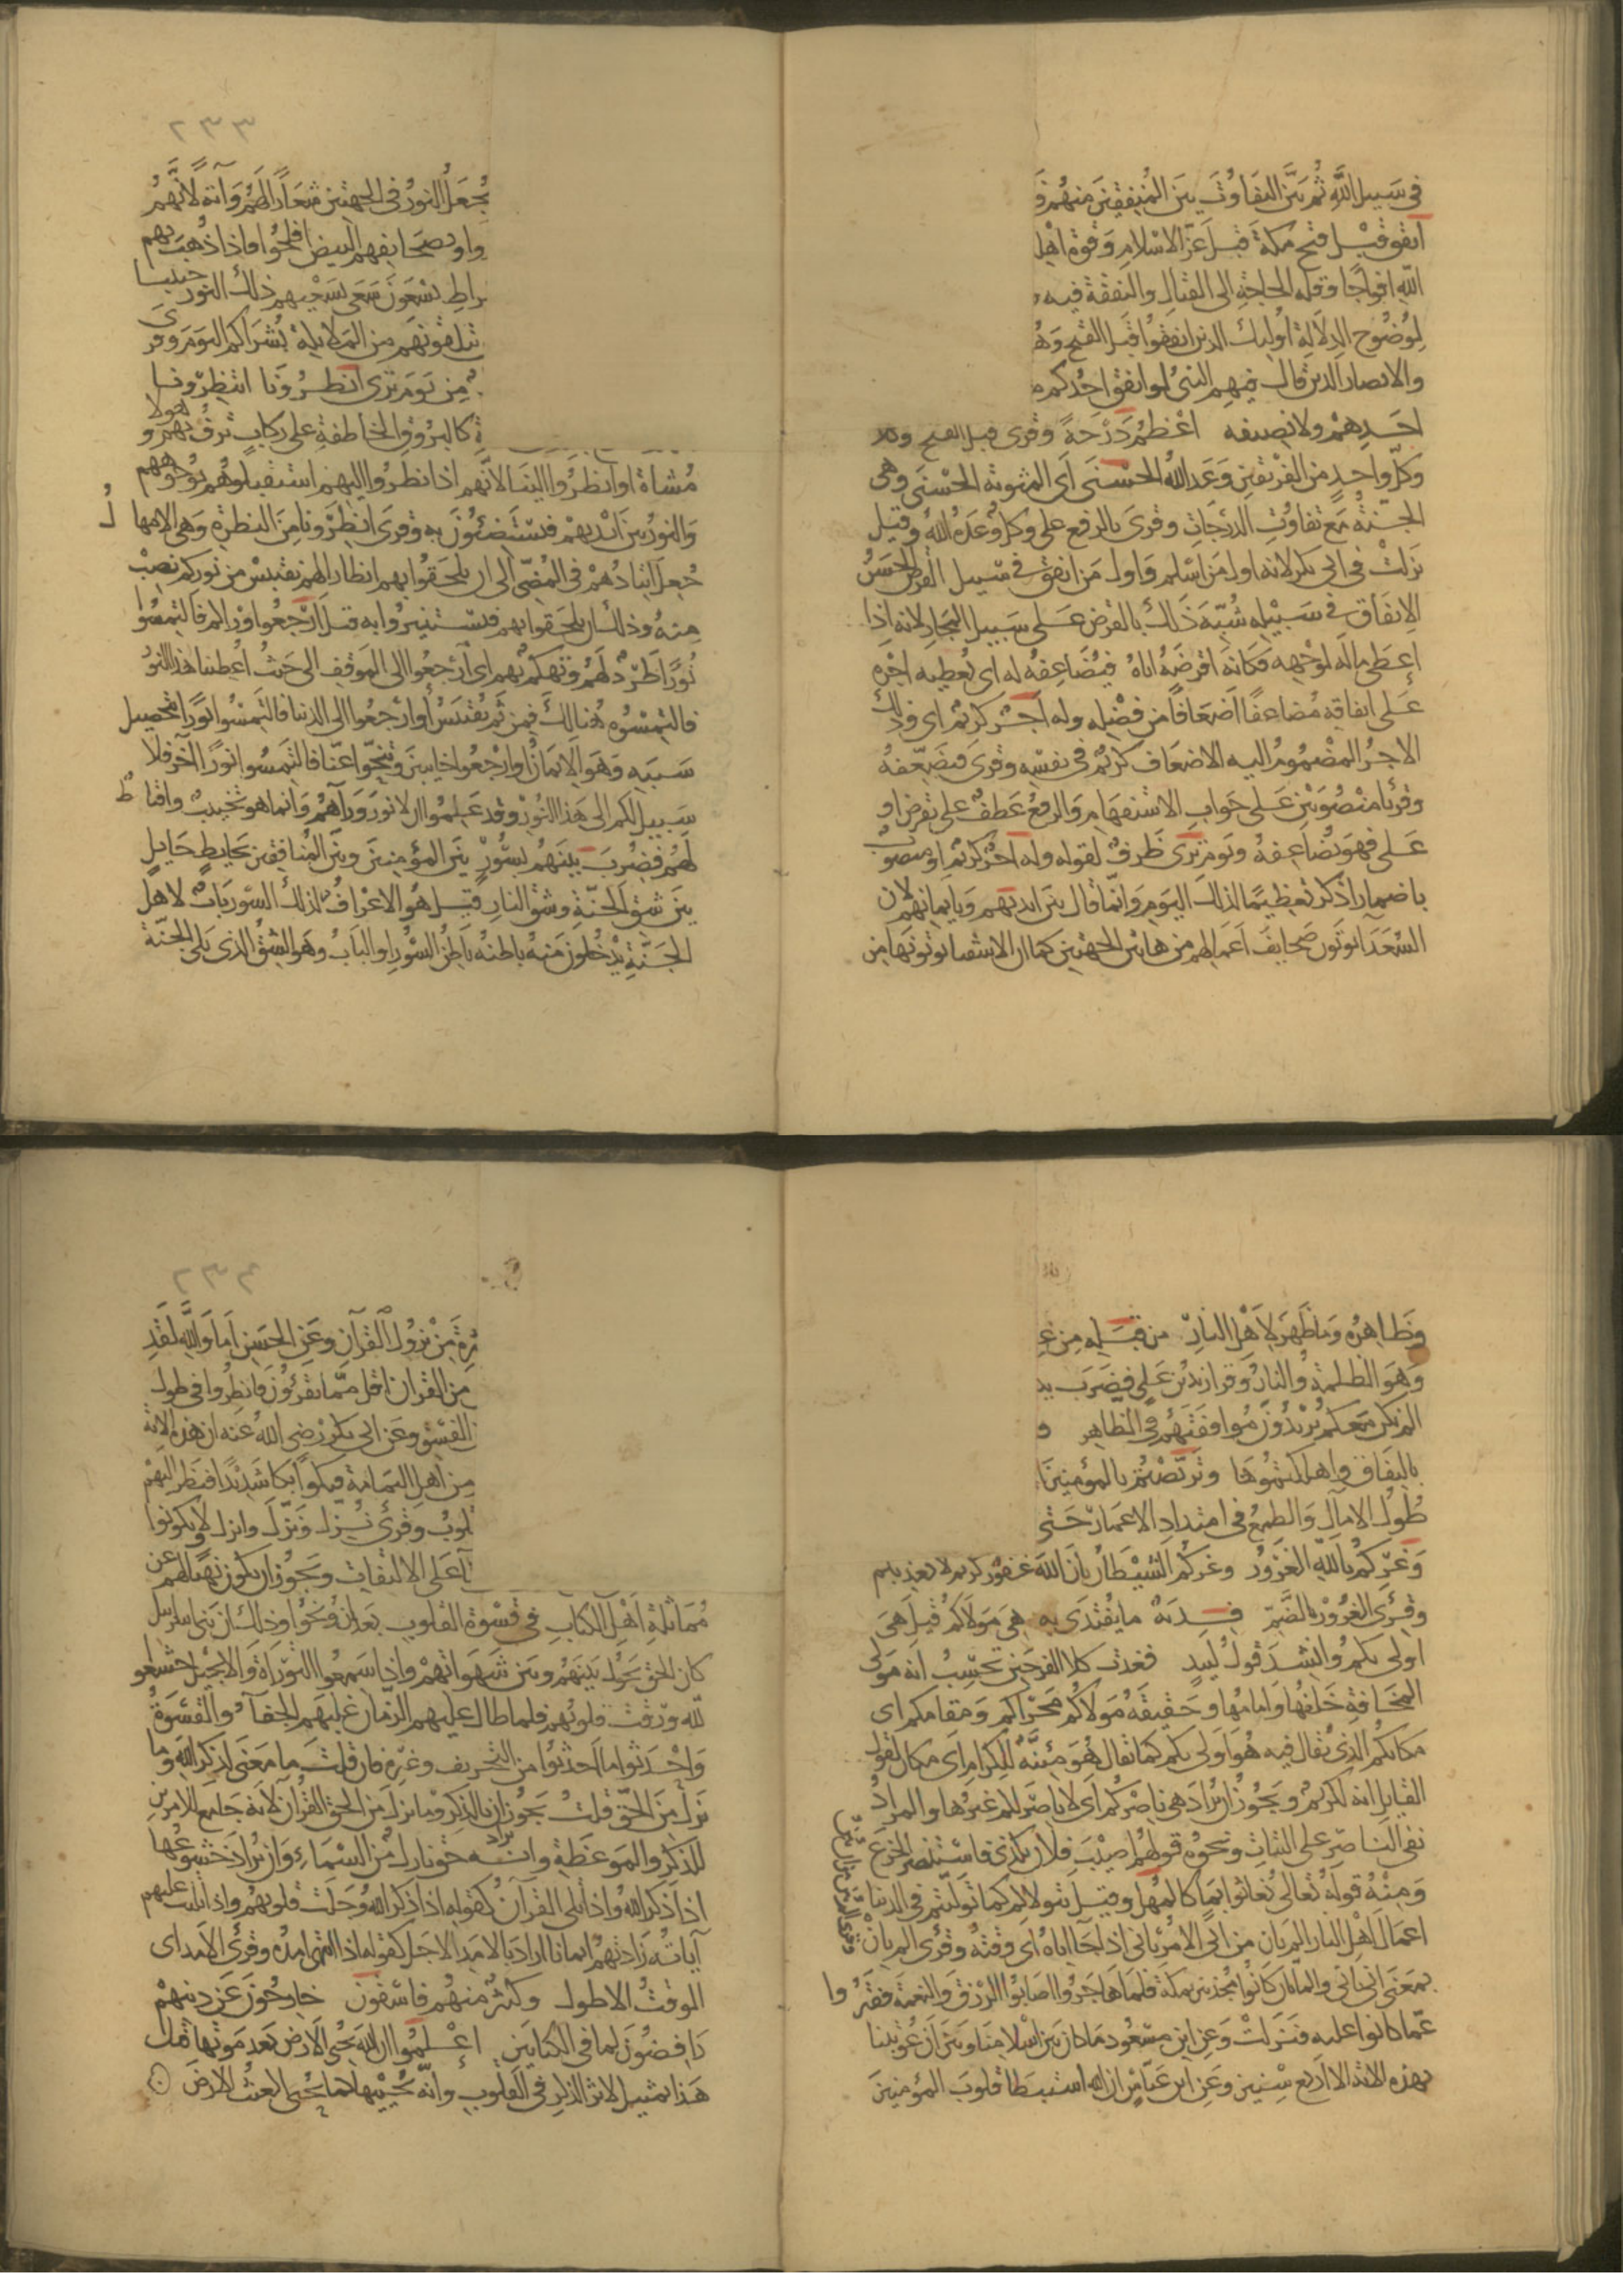 في سبيل الله ثم بين التفاوت بين المنفقين منهم ف
انفق قبل فتح مكة قبل عز الاسلام وقوة اهل
الله افواجا وقله الحاجة الى القتال والنفقة فيه
لوضوح الدلالة اولئك الذين انفقوا قبل الفتح وه
والانصار الذين قال فيهم النبي لو انفق احدكم م
احدهم ولا نصيفه اعظم درجة وقرى قبل الفتح وكلا
وكل واحد من الفريقين وعد الله الحسنى اى المثوبة الحسنى وهى
الجنة مع تفاوت الدرجات وقرى بالرفع على وكل وعده الله وقيل
نزلت في ابي بكر لانه اول من اسلم واول من انفق في سبيل الله القرض الحسن
الانفاق في سبيله شبه ذلك بالقرض على سبيل المجاز لانه اذا
اعطى ماله لوجهه فكانه اقرضه اياه فيضاعفه له اى يعطيه اجره
على انفاقه مضاعفا اضعافا من فضله وله اجر كريم اى وذلك
الاجر المضموم اليه الاضعاف كريم في نفسه وقرى فيضعفه
وقرئا منصوبين على جواب الاستفهام والرفع عطف على يقرض او
على فهو يضاعفه ويوم ترى ظرف لقوله وله اجر كريم او منصوب
باضمار اذكر تعظيما لذلك اليوم وانما قال بين ايديهم وبايمانهم لان
السعدا يوتون صحايف اعمالهم من هاتين الجهتين كما ان الاشقيا يوتونها من
٢٣٣
يجعل النور في الجهتين شعارا لهم وآية لانهم
وا وبصحايفهم البيض افلحوا فاذا ذهب بهم
راط يسعون سعى بسعيهم ذلك النور جنيبا
تتلقونهم من الملايكة بشراكم اليوم وقرى
من يوم ترى انظرونا انتظرونا
ة كالبروق الخاطفة على ركاب تزف بهم وهولا
مشاة او انظروا الينا لانهم اذا نظروا اليهم استقبلوهم بوجوههم
والنور بين ايديهم فيستضئون به وقرى انظرونا من النظرة وهى الامهال
جعل اتئادهم في المضى الى ان يلحقوا بهم انظارا لهم نقتبس من نوركم نصب
منه وذلك ان يلحقوا بهم فيستنيروا به قيل ارجعوا وراكم فالتمسوا
نورا طرد لهم وتهكم بهم اى ارجعوا الى الموقف الى حيث اعطينا هذا النور
فالتمسوه هنالك فمن ثم يقتبس او ارجعوا الى الدنيا فالتمسوا نورا بتحصيل
سببه وهو الايمان او ارجعوا خايبين وتنحوا عنا فالتمسوا نورا آخر فلا
سبيل لكم الى هذا النور وقد علموا ان لا نور وراهم وانما هو تخييب واقناط
لهم فضرب بينهم بسور بين المؤمنين وبين المنافقين بحايط حايل
بين شق الجنة وشق النار قيل هو الاعراف لذلك السور باب لاهل
الجنة يدخلون منه باطنه باطن السور او الباب وهو الشق الذي يلى الجنة
وظاهره وما ظهر لاهل النار من قبله من ع
وهو الظلمة والنار وقرا زيد بن على فضرب بي
الم نكن معكم يريدون موافقتهم في الظاهر
بالنفاق واهلكتموها وتربصتم بالمؤمنين
طول الامال والطمع في امتداد الاعمار حتى
وغركم بالله الغرور وغركم الشيطان بان الله غفور كريم لا يعذبكم
وقرى الغرور بالضم فدية ما يفتدى به هى مولاكم قيل هى
اولى بكم وانشد قول لبيد فغدت كلا الفرجين تحسب انه مولى
المخافة خلفها وامامها وحقيقة مولاكم محراكم ومقامكم اى
مكانكم الذي يقال فيه هو اولى بكم كما يقال هو مئنة للكرام اى مكان لقول
القايل انه لكريم ويجوز ان يراد هى ناصركم اى لا ناصر لكم غيرها والمراد
نفى الناصر على الثبات ونحوه قولهم اصيب فلان بكذى فاستنصر الجزع
ومنه قوله تعالى يغاثوا بماء كالمهل وقيل تتولاكم كما توليتم في الدنيا
اعمال اهل النار الم يان من انى الامر يانى اذا جا اناه اى وقته وقرى الم يان
بمعنى انى يانى والما يان كانوا مجدبين بمكة فلما هاجروا اصابوا الرزق والنعمة ففتروا
عما كانوا عليه فنزلت وعن ابن مسعود ما كان بين اسلامنا وبين ان عوتبنا
بهذه الاية الا اربع سنين وعن ابن عباس ان الله استبطا قلوب المؤمنين
٢٣٤
رة من نزول القرآن وعن الحسن اما والله لقد
من القران اقل مما تقرئون فانظروا في طول
الفسق وعن ابي بكر رضى الله عنه ان هذه الاية
من اهل اليمامة فبكوا بكا شديدا فنظر اليهم
لوب وقرى نزل ونزل وانزل ولا يكونوا
تا على الالتفات ويجوز ان يكون نهيا لهم عن
مماثلة اهل الكتاب في قسوة القلوب بعد ان وبخوا وذلك ان بنى اسرايل
كان الحق يحول بينهم وبين شهواتهم واذا سمعوا التوراة والانجيل خشعوا
لله ورقت قلوبهم فلما طال عليهم الزمان غلبهم الجفاء والقسوة
واحدثوا ما احدثوا من التحريف وغيره فان قلت ما معنى لذكر الله وما
نزل من الحق قلت يجوز ان يراد بالذكر وما نزل من الحق القرآن لانه جامع للامرين
للذكر والموعظة وانه حق نازل من السماء وان يراد خشوعها
اذا ذكر الله واذا تلى القرآن كقوله اذا ذكر الله وجلت قلوبهم واذا تليت عليهم
آياته زادتهم ايمانا اراد بالامد الاجل كقوله اذا انتهى امده وقرى الامد اى
الوقت الاطول وكثير منهم فاسقون خارجون عن دينهم
رافضون لما في الكتابين اعلموا ان الله يحى الارض بعد موتها قيل
هذا تمثيل لاثر الذكر في القلوب وانه يحييها كما يحيى الغيث الارض